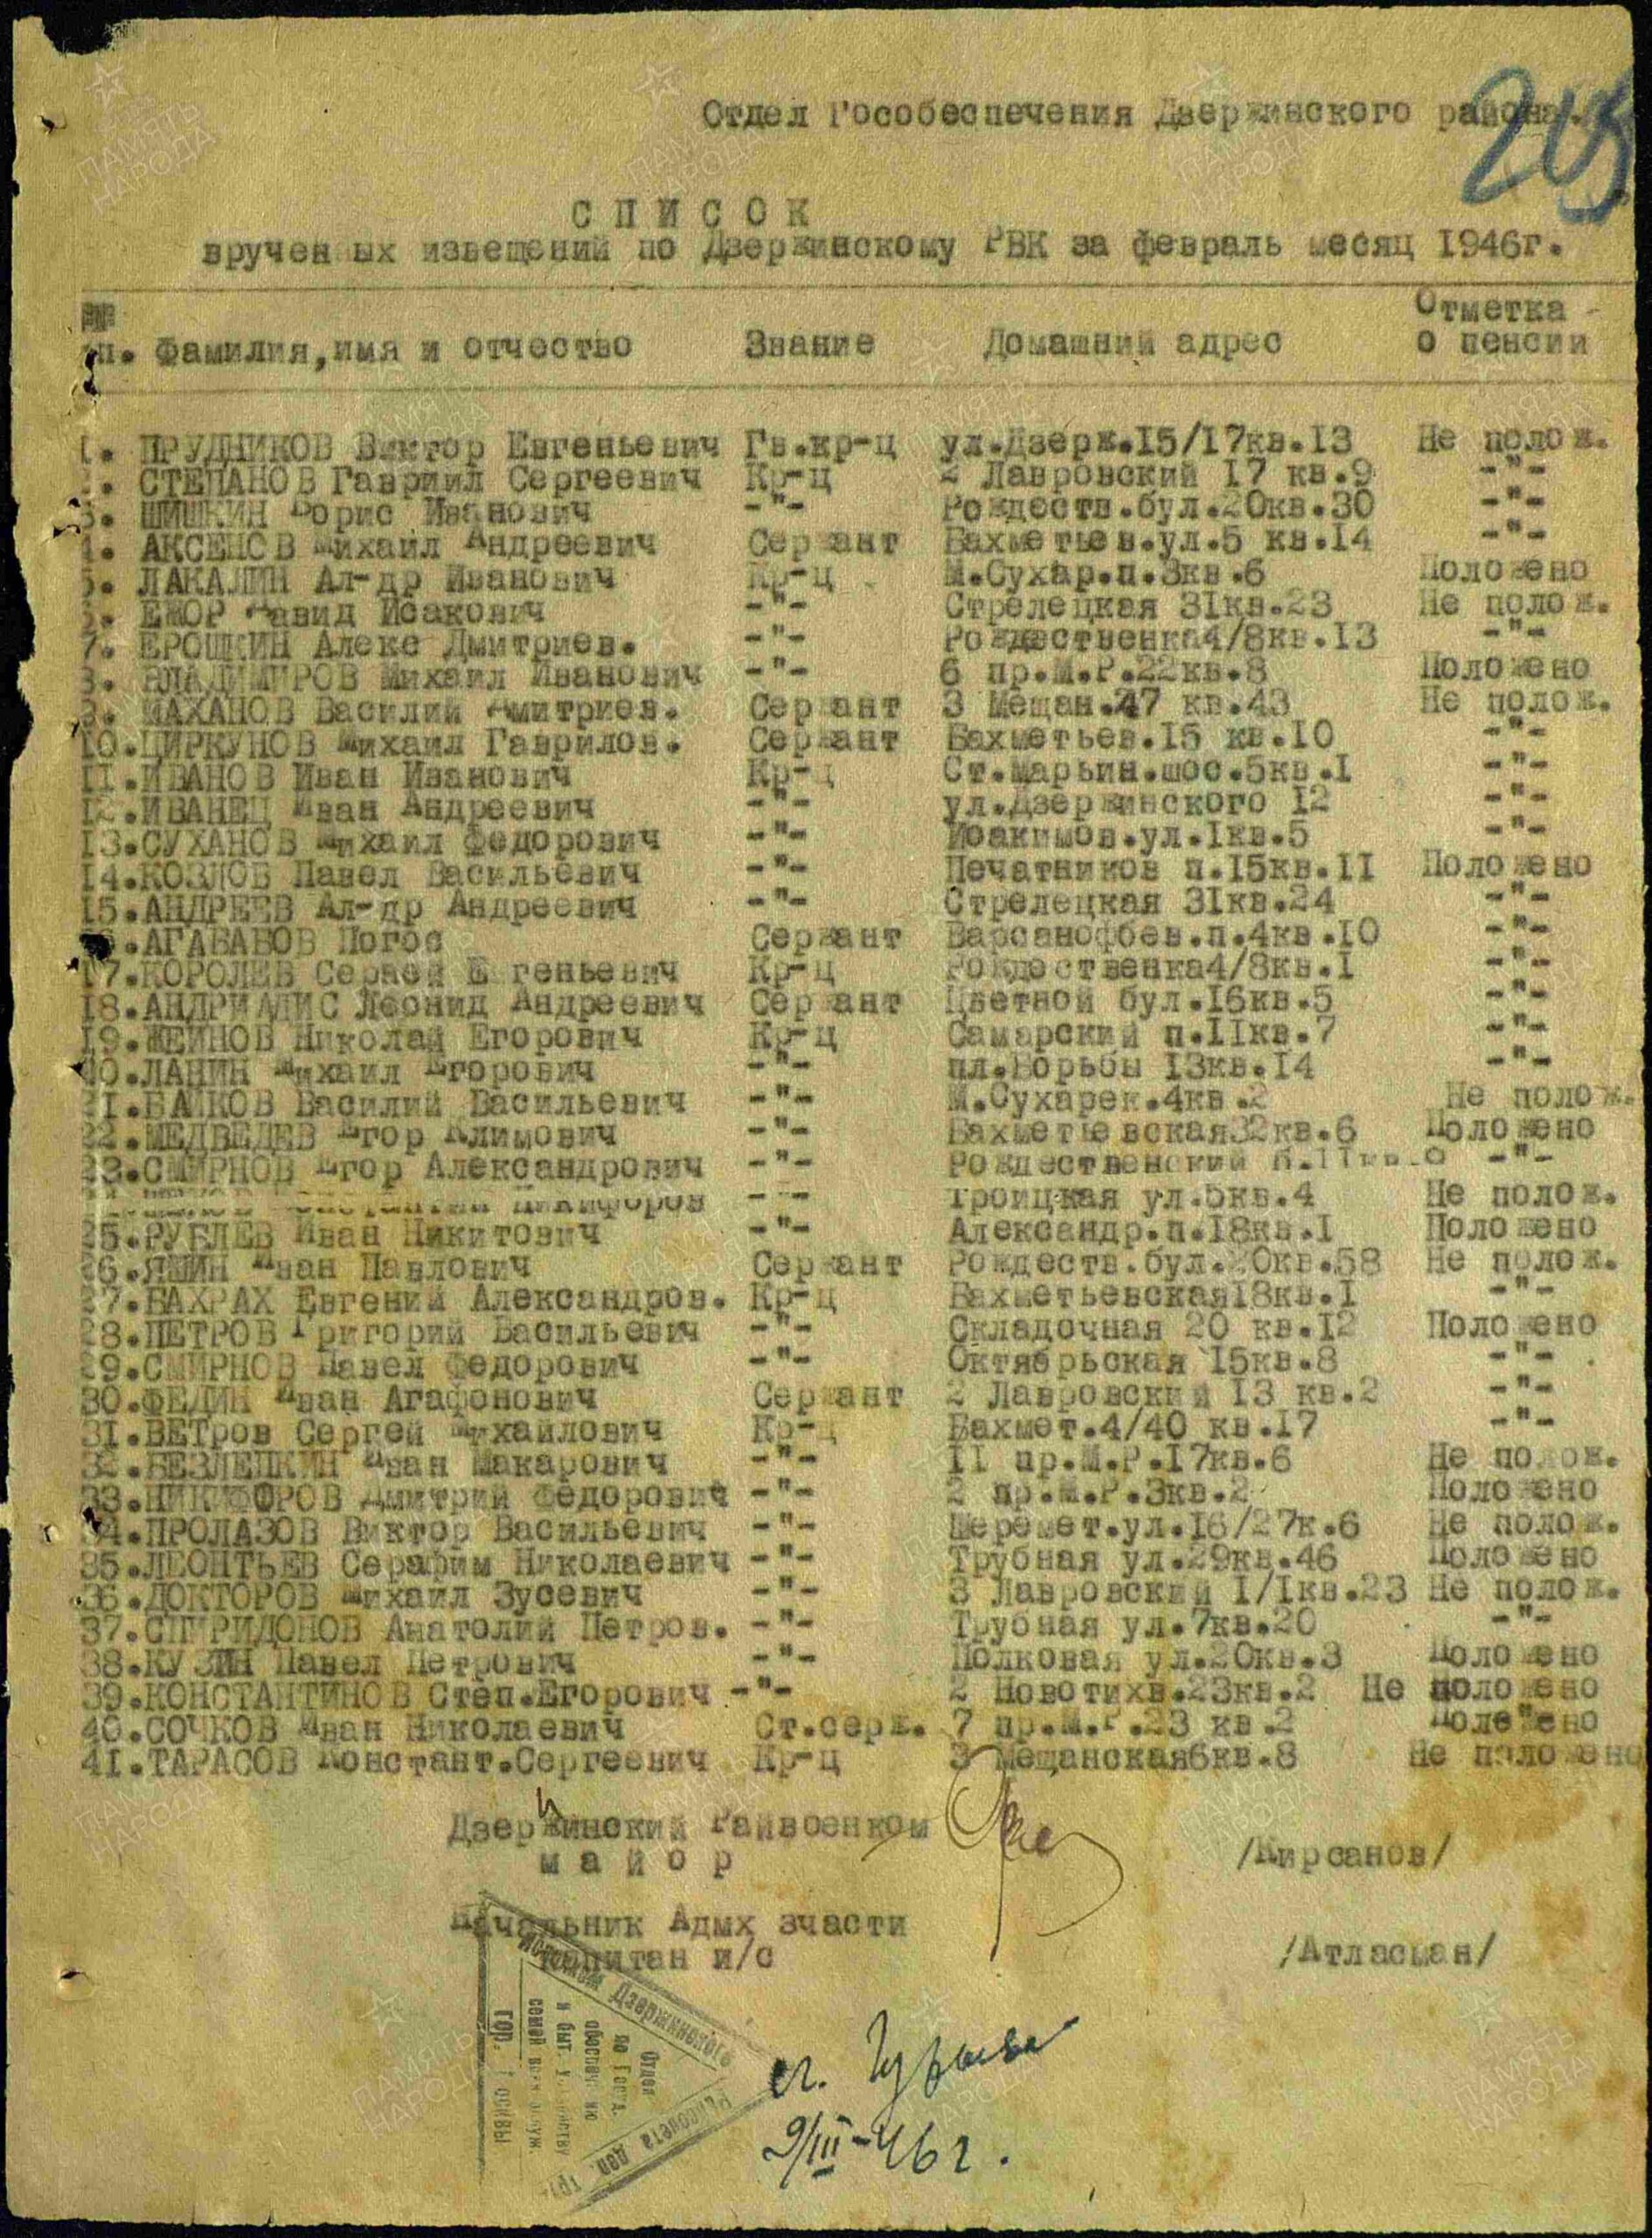 Отдел Гособеспечения Дзержинского района.
205
СПИСОК
врученных извещений по Дзержинскому РВК за февраль месяц 1946г.
№№
пп. Фамилия,имя и отчество Звание Домашний адрес Отметка о пенсии
1. ПРУДНИКОВ Виктор Евгеньевич Гв.кр-ц ул.Дзерж.15/17кв.13 Не полож.
2. СТЕПАНОВ Гавриил Сергеевич Кр-ц 2 Лавровский 17 кв.9 -"-
3. ШИШКИН Борис Иванович -"- Рождеств.бул.20кв.30 -"-
4. АКСЕНОВ Михаил Андреевич Сержант Бахметьев.ул.5 кв.14 -"-
5. ЛАКАЛИН Ал-др Иванович Кр-ц М.Сухар.п.3кв.6 Положено
6. ЕЖОР Давид Исакович -"- Стрелецкая 31кв.23 Не полож.
7. ЕРОШКИН Алекс Дмитриев. -"- Рождественка4/8кв.13 -"-
8. ВЛАДИМИРОВ Михаил Иванович -"- 6 пр.М.Р.22кв.8 Положено
9. МАХАНОВ Василий Дмитриев. Сержант 3 Мещан.47 кв.43 Не полож.
10.ЦИРКУНОВ Михаил Гаврилов. Сержант Бахметьев.15 кв.10 -"-
11.ИВАНОВ Иван Иванович Кр-ц Ст.Марьин.шос.5кв.1 -"-
12.ИВАНЕЦ Иван Андреевич -"- ул.Дзержинского 12 -"-
13.СУХАНОВ Михаил Федорович -"- Иоакимов.ул.1кв.5 -"-
14.КОЗЛОВ Павел Васильевич -"- Печатников п.15кв.11 Положено
15.АНДРЕЕВ Ал-др Андреевич -"- Стрелецкая 31кв.24 -"-
16.АГАБАБОВ Погос Сержант Варсанофьев.п.4кв.10 -"-
17.КОРОЛЕВ Сергей Евгеньевич Кр-ц Рождественка4/8кв.1 -"-
18.АНДРИАДИС Леонид Андреевич Сержант Цветной бул.16кв.5 -"-
19.ЖЕИНОВ Николай Егорович Кр-ц Самарский п.11кв.7 -"-
20.ЛАНИН Михаил Егорович -"- пл.Борьбы 13кв.14 -"-
21.БАЙКОВ Василий Васильевич -"- М.Сухарек.4кв.2 Не полож.
22.МЕДВЕДЕВ Егор Климович -"- Бахметьевская32кв.6 Положено
23.СМИРНОВ Егор Александрович -"- Рождественский б.11кв.9 -"-
Никифоров -"- Троицкая ул.5кв.4 Не полож.
25.РУБЛЕВ Иван Никитович -"- Александр.п.18кв.1 Положено
26.ЯШИН Иван Павлович Сержант Рождеств.бул.20кв.58 Не полож.
27.БАХРАХ Евгений Александров. Кр-ц Бахметьевская18кв.1 -"-
28.ПЕТРОВ Григорий Васильевич -"- Складочная 20 кв.12 Положено
29.СМИРНОВ Павел Федорович -"- Октябрьская 15кв.8 -"-
30.ФЕДИН Иван Агафонович Сержант 2 Лавровский 13 кв.2 -"-
31.ВЕТров Сергей Михайлович Кр-ц Бахмет.4/40 кв.17 -"-
32.БЕЗЛЕПКИН Иван Макарович -"- 11 пр.М.Р.17кв.6 Не полож.
33.НИКИФОРОВ Дмитрий Федорович -"- 2 пр.М.Р.3кв.2 Положено
34.ПРОЛАЗОВ Виктор Васильевич -"- Шеремет.ул.16/27к.6 Не полож.
35.ЛЕОНТЬЕВ Серафим Николаевич -"- Трубная ул.29кв.46 Положено
36.ДОКТОРОВ Михаил Зусевич -"- 3 Лавровский 1/1кв.23 Не полож.
37.СПИРИДОНОВ Анатолий Петров. -"- Трубная ул.7кв.20 -"-
38.КУЗИН Павел Петрович -"- Полковая ул.20кв.3 Положено
39.КОНСТАНТИНОВ Степ.Егорович -"- 2 Новотихв.23кв.2 Не положено
40.СОЧКОВ Иван Николаевич Ст.серж. 7 пр.М.Р.23 кв.2 Положено
41.ТАРАСОВ Констант.Сергеевич Кр-ц 3 Мещанская6кв.8 Не положено
Дзержинский Райвоенком
майор /Кирсанов/
Начальник Адмхзчасти
капитан и/с /Атласман/
Исполком Дзержинского
Райсовета деп. тру
Отдел
по Госуд.
обеспечению
и быт. устройству
семей военнослуж.
гор. Москвы
ст. Гурьева
9/III-46г.